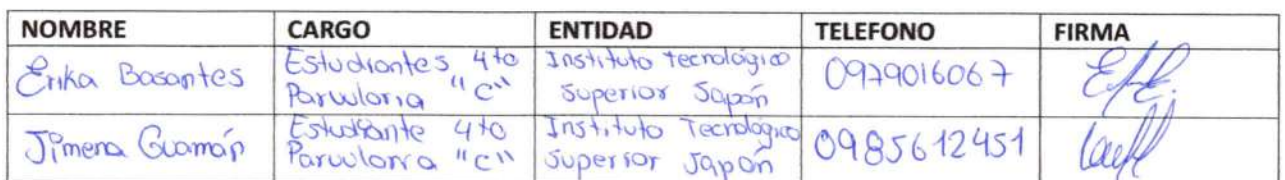 NOMBRE CARGO ENTIDAD TELEFONO FIRMA
Erika Basantes Estudiantes 4to Parvularia "C" Instituto Tecnológico Superior Japón 0979016067
Jimena Guamán Estudiante 4to Parvularia "C" Instituto Tecnológico Superior Japón 0985612451